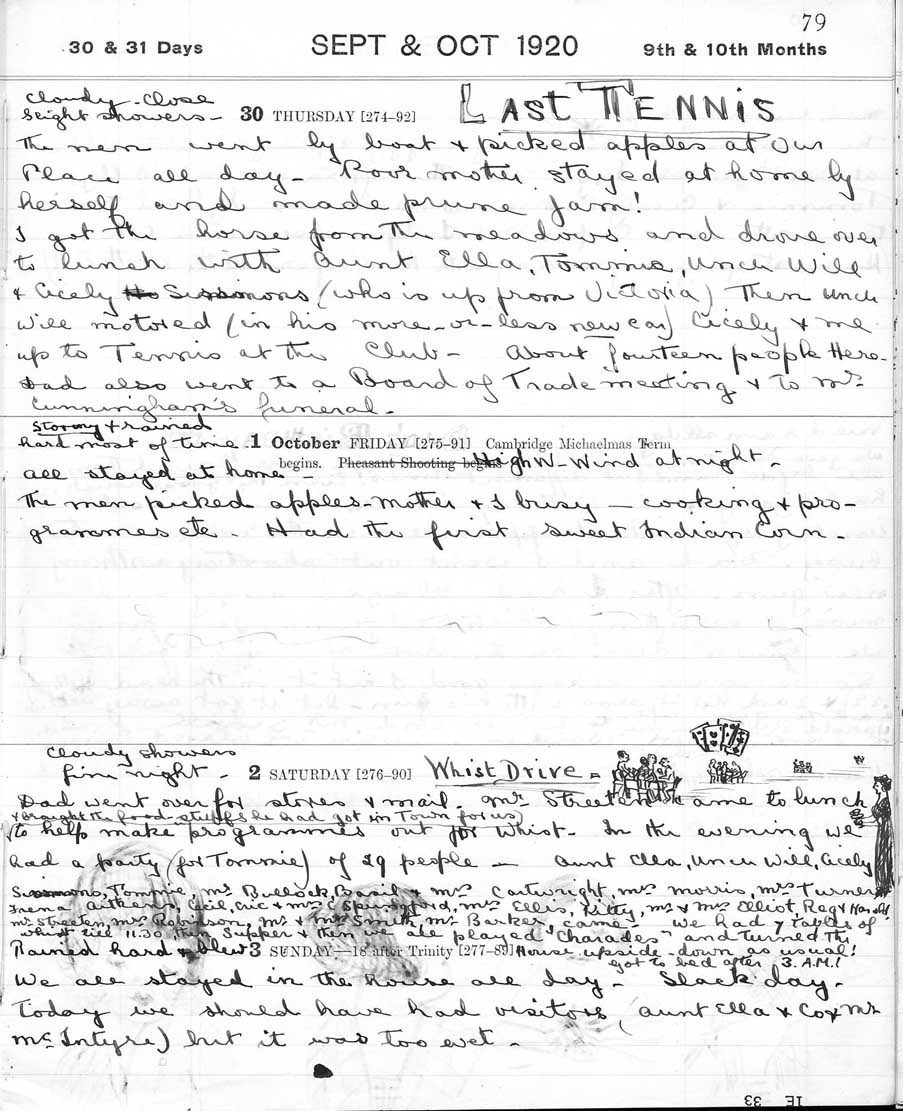 79
30 & 31 Days SEPT & OCT 1920 9th & 10th Months
Cloudy - Close
Slight showers - 30 THURSDAY [274-92] LAST TENNIS
The men went by boat & picked apples at Our
Place all day - Poor mother stayed at home by
herself and made prune jam!
I got the horse from the meadows and drove over
to lunch with Aunt Ella, Tommie, Uncle Will
& Cicely Simmons (who is up from Victoria) Then Uncle
Will motored (in his more-or-less new car) Cicely & me
up to Tennis at the Club - About fourteen people Here.
Dad also went to a Board of Trade meeting & to Mr.
Cunningham's funeral -
Stormy & rained
hard most of time. 1 October FRIDAY [275-91] Cambridge Michaelmas Term
begins. Pheasant Shooting begins High W- Wind at night -
All stayed at home -
The men picked apples - Mother & I busy - cooking & pro-
grammes etc - Had the first sweet Indian Corn -
Cloudy showers
fine night - 2 SATURDAY [276-90] Whist Drive =
Dad went over for stores & mail. Mr Streeten came to lunch
& brought the food-stuffs he had got in Town for us)
to help make programmes out for Whist - In the evening we
had a party (for Tommie) of 29 people - Aunt Ella, Uncle Will, Cicely
Simmons, Tommie, Mr Bullock, Basil & Mrs Cartwright, Mrs Morris, Mrs Turner
Aitkens, Cecil, Eric & Mrs C Springford, Mrs Ellis, Kitty, Mr & Mrs Elliot, Reg & Harold
Mr Streeten, Mrs Robinson, Mr & Mrs Smith, Mr Barker came - We had 7 tables of
whist till 11.30, then Supper & then we all played "Charades" and turned the
House upside-down as usual!
got to bed after 3. A.M!
Rained hard & blew 3 SUNDAY—18 after Trinity [277-89]
We all stayed in the house all day - Slack day -
Today we should have had visitors (Aunt Ella & Co & Mr
McIntyre) but it was too wet -